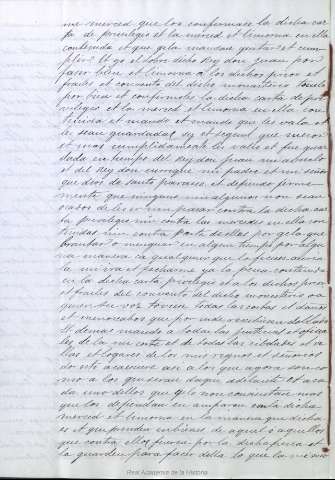 me merced que les confirmase la dicha car
ta de previlegio et la merced et limosna en ella
contenida et que gela mandase guardar et cum
plir. Et yo el sobre dicho Rey don juan por
faser bien et limosna a los dichos prior et
frailes et convento del dicho monesterio tovelo
por bien et confirmoles la dicha carta de pre
vilegio et la merced et limosna en ella con
tenida et mando et mando que les vala et
les sean guardadas sy et segunt que mejor
et mas cumplidamente les valio et fue guar
dada en tiempo del Rey don juan mi abuelo
et del Rey don enrrique mi padre et mi señor
que dios de santo paraiso et defiendo firme
mente que ninguno nin algunos non sean
osados de les ir nin pasar contra la dicha car
ta previlegio nin contra las mercedes en ella con
tenidas nin contra parte dellas por gela que
brantar o menguar en algun tiempo por algu
na manera ca qualquier que lo ficiese avria
la mi ira et pecharme ya la pena contenida
en la dicha carta previlegio et a los dichos prior
et frailes del convento del dicho monesterio o a
quien su vos toviese todas las costas et daños
et menoscabos que por ende rescibiesen doblados
Et demas mando a todas las justicias et oficia
les de la mi corte et de todas las cibdades et vi
llas et logares de los mis regnos et señorios
do esto acaesciere asi a los que agora son co
mo a los que seran daqui adelante et a ca
da uno dellos que gelo non consientan mas
que los defiendan et amparen con la dicha
merced et limosna en la manera que dicha
es et que prenden en bienes de aquel o aquellos
que contra ello fueren por la dicha pena et
la guarden para faser della lo que la mi mer
Real Academia de la Historia